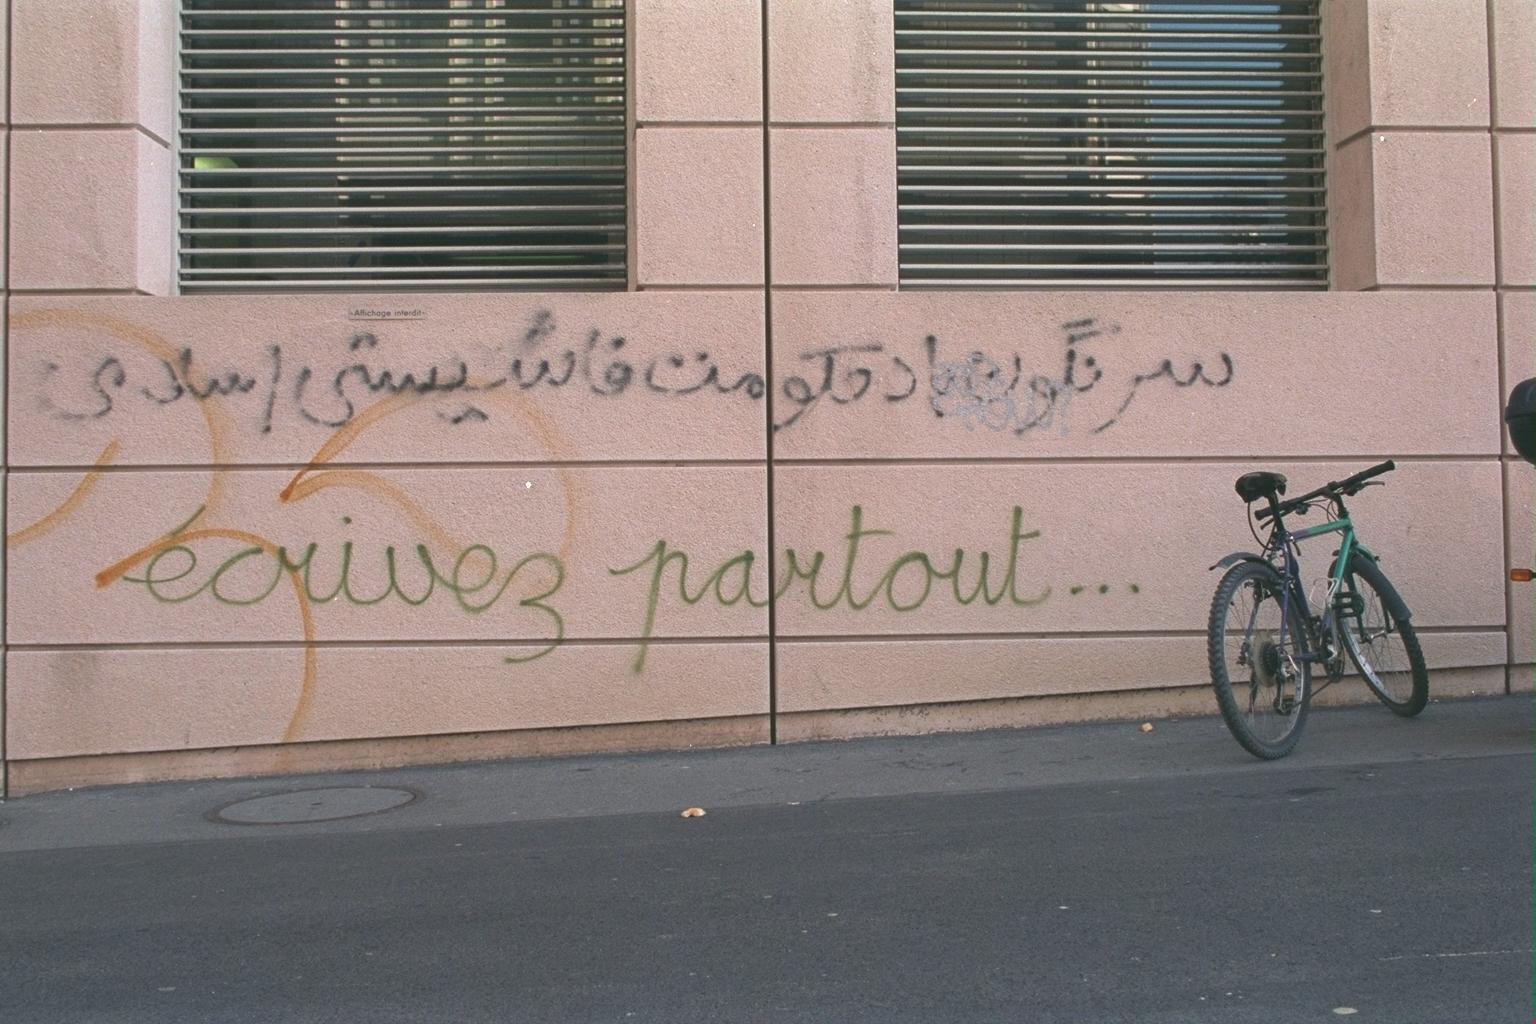 -Affichage interdit-
سرنگون باد حکومت فاشیستی اسلامی
écrivez partout...